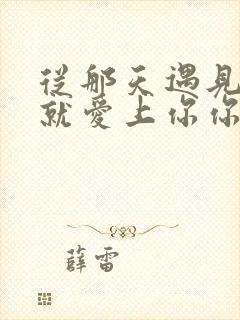 從那天遇見
就愛上你你
薛雷